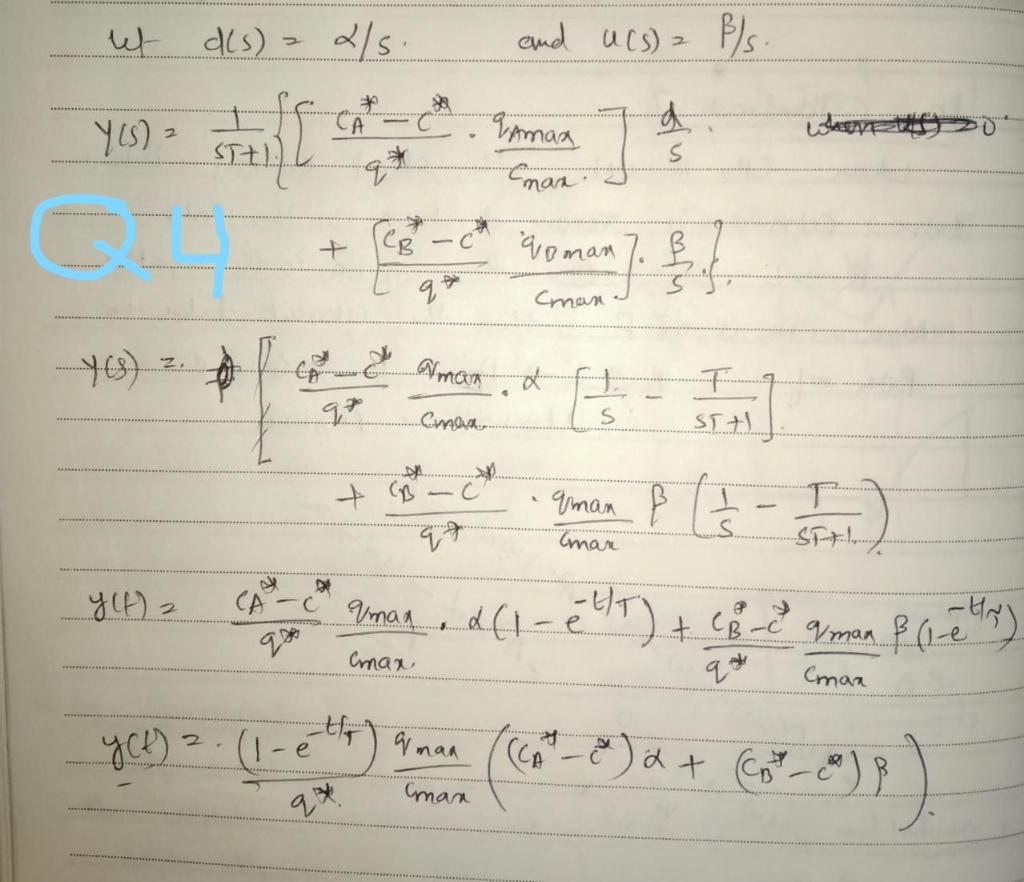 let d(s) = α/s. and u(s) = β/s.
y(s) = 1/(sT+1) { [ (CA* - C*)/q* · qAmax/Cmax. ] α/s .
Q4
+ [ (CB* - C*)/q* qBmax/Cmax. ] . β/s . } .
y(s) = . [ (CA* - C*)/q* qmax/Cmax . α [ 1/s - T/(sT+1) ] .
+ (CB* - C*)/q* . qmax/Cmax β ( 1/s - T/(sT+1) ) .
y(t) = (CA* - C*)/q* qmax/Cmax. . α (1 - e^-t/T) + (CB* - C*)/q* qmax/Cmax β (1 - e^-t/T)
y(t) = . (1 - e^-t/T)/q* . qmax/Cmax ( (CA* - C*) α + (CB* - C*) β ) .